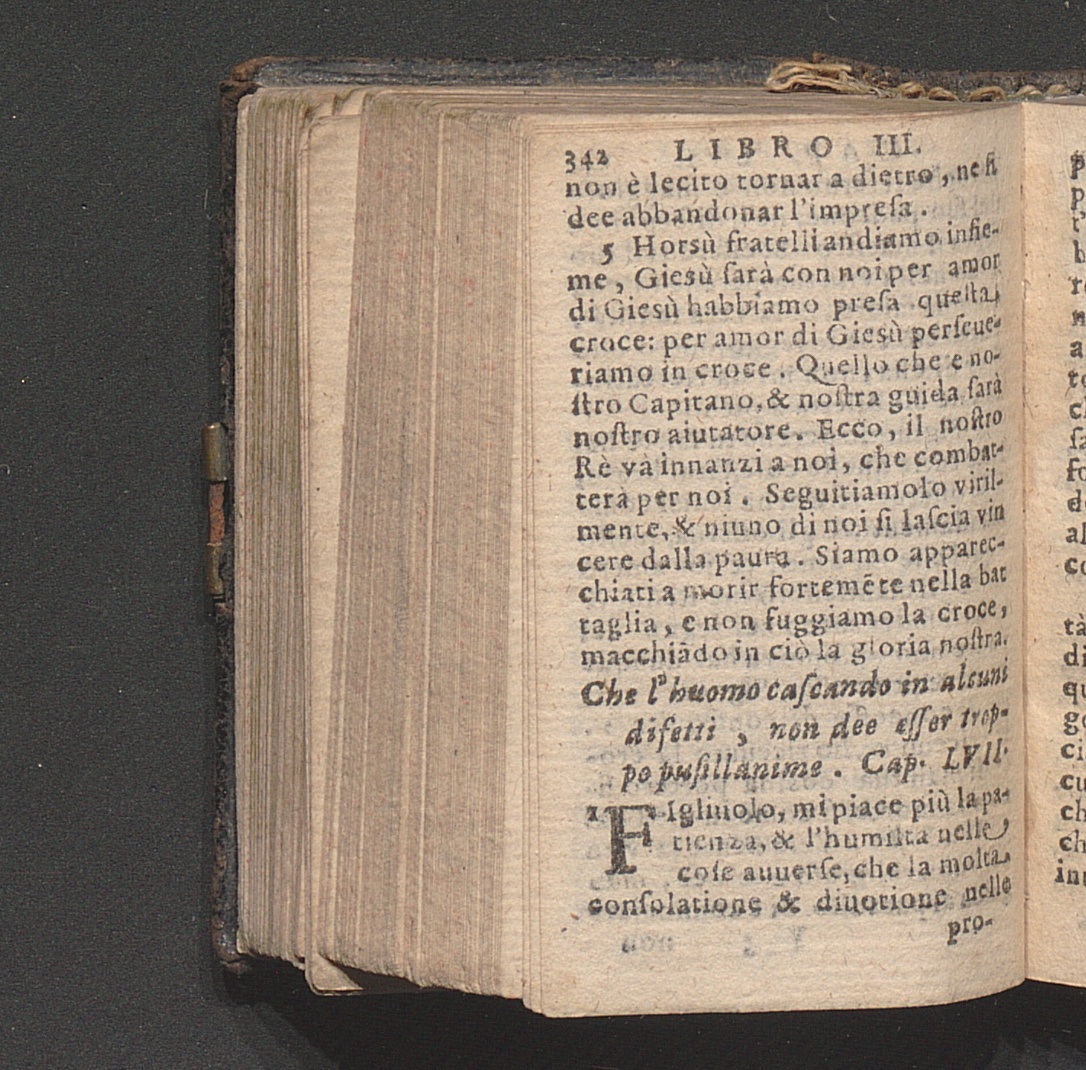 342 LIBRO III.
non è lecito tornar a dietro, ne ſi
dee abbandonar l'impreſa.
5 Horsù fratelli andiamo inſie-
me, Giesù ſarà con noi per amor
di Giesù habbiamo preſa queſta
croce: per amor di Gieſù perſeue-
riamo in croce. Quello che e no-
ſtro Capitano, & noſtra guida ſarà
noſtro aiutatore. Ecco, il noſtro
Rè và innanzi a noi, che combat-
terà per noi. Seguitiamolo viril-
mente, & niuno di noi ſi laſcia vin
cere dalla paura. Siamo apparec-
chiati a morir fortemẽte nella bat
taglia, e non fuggiamo la croce,
macchiãdo in ciò la gloria noſtra.
Che l'huomo caſcando in alcuni
difetti, non dee eſſer trop-
po puſillanime. Cap. LVII.
1 FIgliuolo, mi piace più la pa-
tienza, & l'humiltà nelle
coſe auuerſe, che la molta
conſolatione & diuotione nelle
pro-
p
p
t'
b
re
n
a
to
c
ſa
fo
de
al
co
tà
di
qu
go
ci
cu
ch
ch
inn